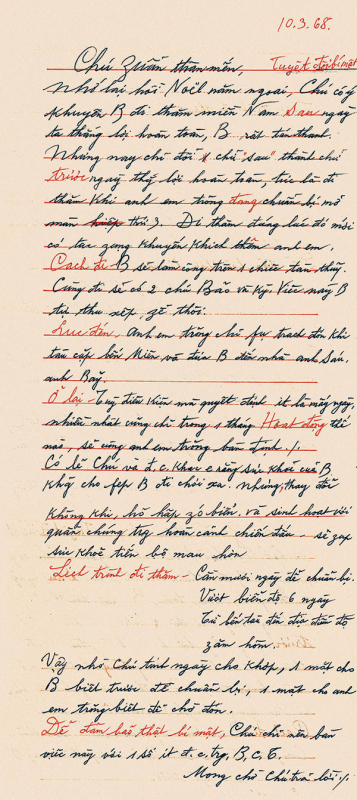 10.3.68.
Chú Zuẩn thân mến, Tuyệt đối bí mật
Nhớ lại hồi Nôël năm ngoái, Chú có ý
khuyên B đi thăm miền Nam sau ngày
ta thắng lợi hoàn toàn, B rất tán thành.
Nhưng nay chỉ đổi 1 chữ "sau" thành chữ
trước ngày thắng lợi hoàn toàn, tức là đi
thăm khi anh em trong đang chuẩn bị mở
màn hiệp thứ 3. Đi thăm đúng lúc đó mới
có tác zụng khuyến khích thêm anh em.
Cách đi B sẽ làm công trên 1 chiếc tàu thủy.
Cùng đi sẽ có 2 chú Bảo và Kỳ. Việc này B
tự thu xếp, zễ thôi.
Lúc đến, Anh em trong chỉ fụ trách đón khi
tàu cập bến Miên và đưa B đến nhà anh Sáu,
anh Bảy.
Ở lại - Tùy điều kiện mà quyết định ít là mấy ngày,
nhiều nhất cũng chỉ trong 1 tháng Hoạt động thế
nào, sẽ cùng anh em trong bàn định ./.
Có lẽ Chú và đ.c. khác e rằng sức khỏe của B
khg cho fép B đi chơi xa. Nhưng, thay đổi
không khí, hô hấp zó biển, và sinh hoạt với
quần chúng trg hoàn cảnh chiến đấu - sẽ zúp
sức khoẻ tiến bộ mau hơn
Lịch trình đi thăm - Cần mươi ngày để chuẩn bị.
Vượt biển độ 6 ngày
Từ bến tàu đến đó độ
zăm hôm.
Vậy nhờ Chú tính ngày cho khớp, 1 mặt cho
B biết trước để chuẩn bị, 1 mặt cho anh
em trong biết để chờ đón.
Để đảm bảo thật bí mật, Chú chỉ nên bàn
việc này với 1 số ít đ.c. trg, B.C.T.
Mong chờ Chú trả lời ./.